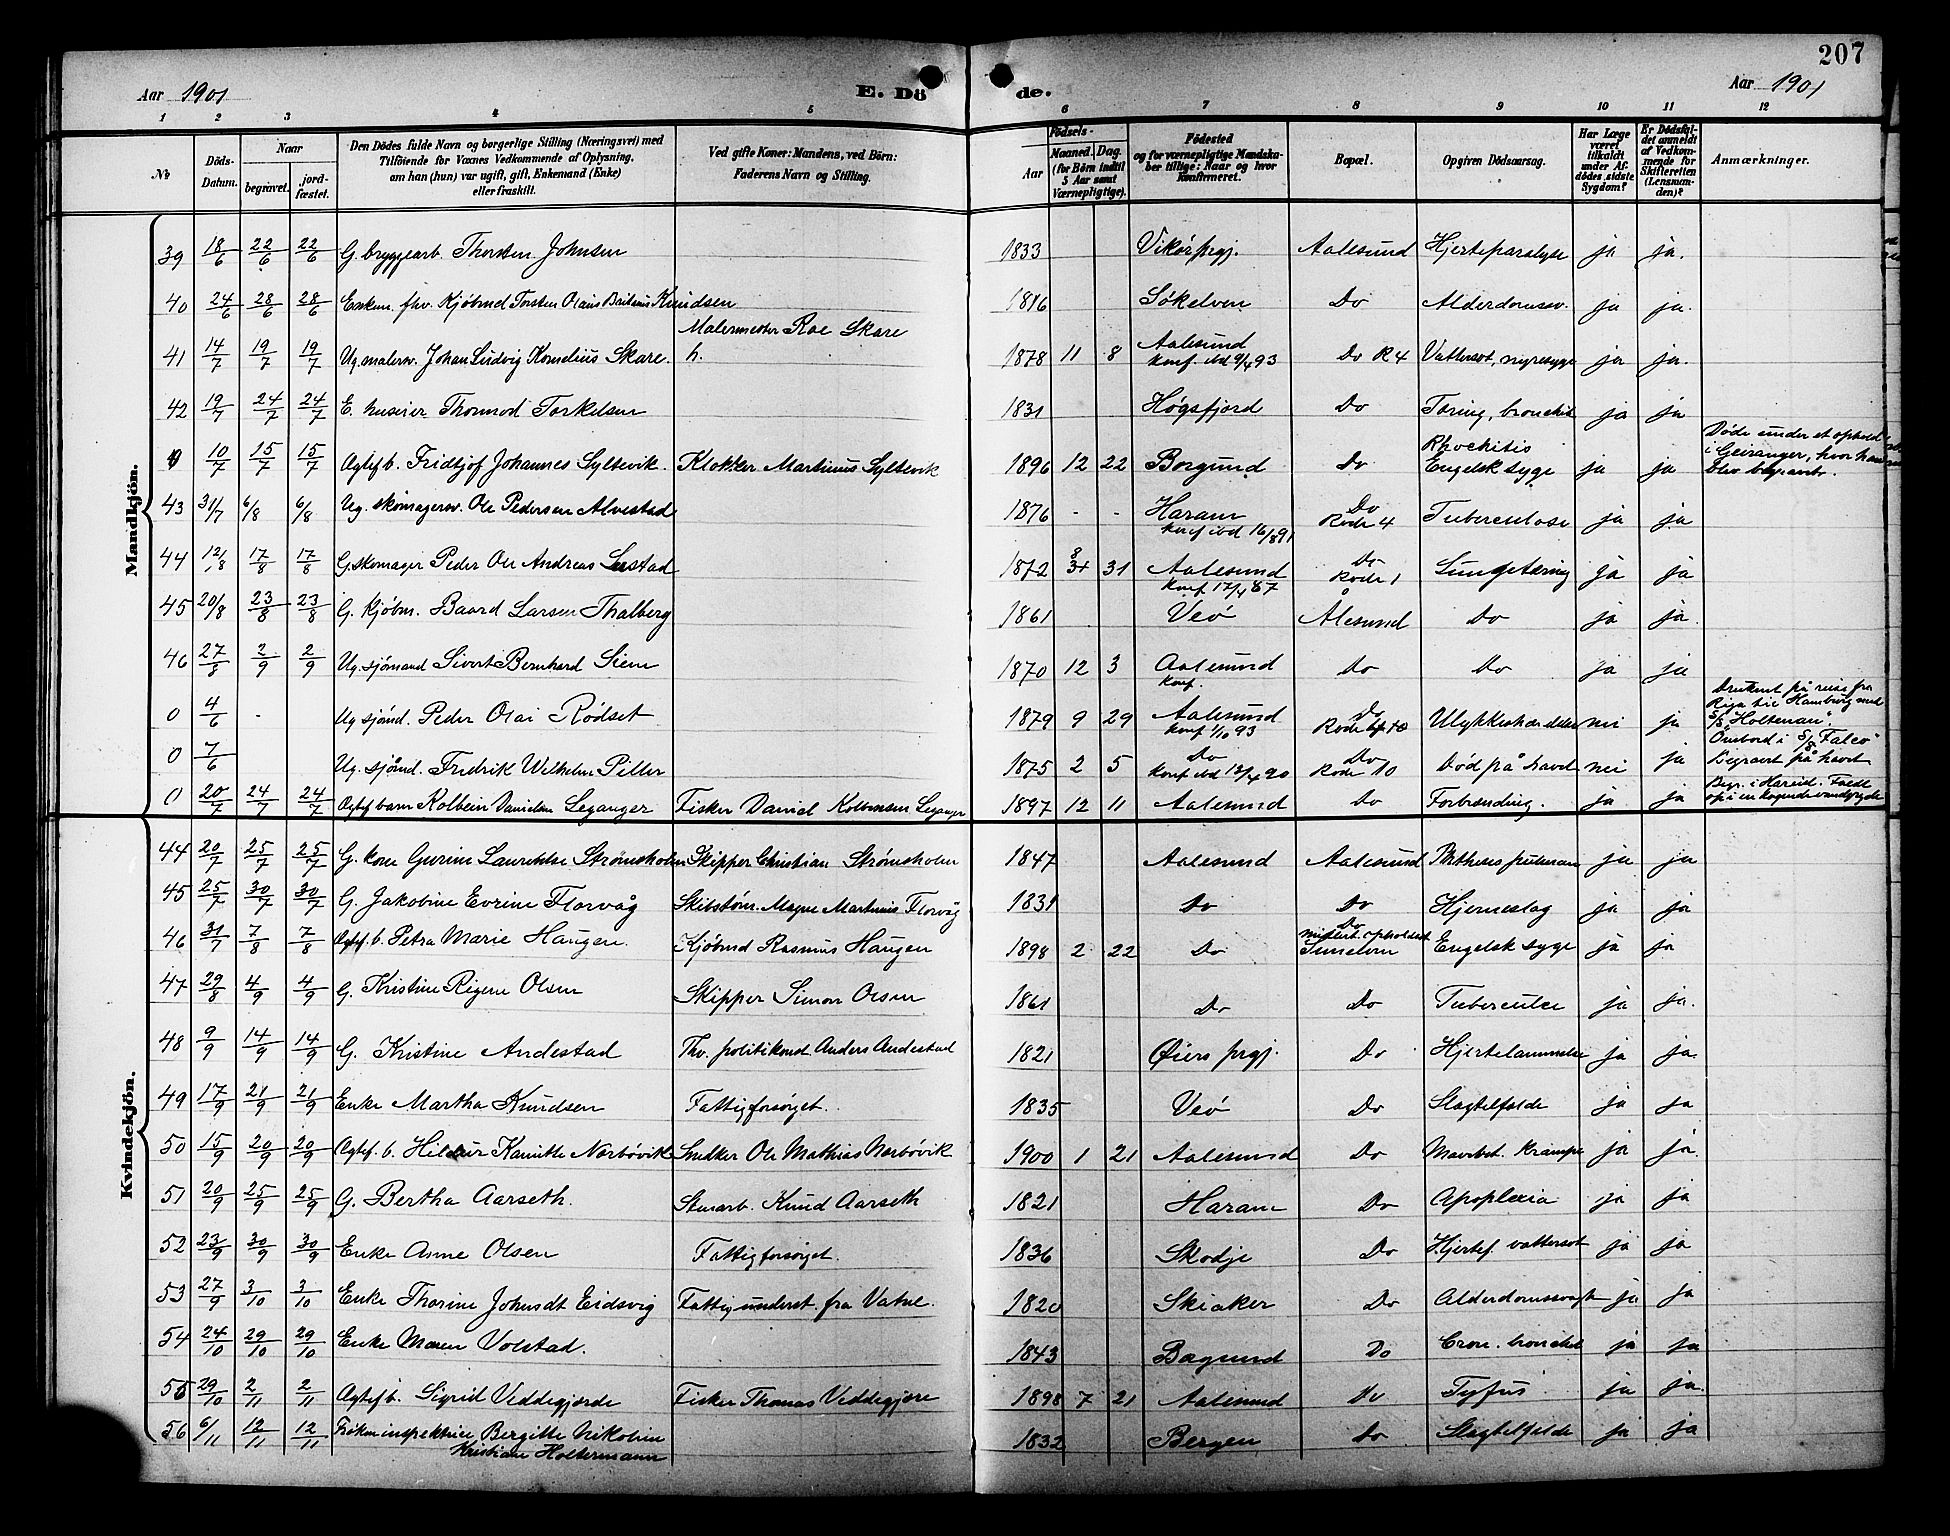 207
Aar 1901
E. Dö de.
Aar 1901
1 2 3 4 5 6 7 8 9 10 11 12
No
Döds-Datum.
Naar begravet. jord-fæstet.
Den Dödes fulde Navn og borgerlige Stilling (Næringsvei) med Tilföiende for Voxnes Vedkommende af Oplysning, om han (hun) var ugift, gift, Enkemand (Enke) eller fraskilt.
Ved gifte Koner: Mandens, ved Börn: Faderens Navn og Stilling.
Födsels-
Aar
Maaned. Dag. (for Börn indtil 5 Aar samt Værnepligtige).
Födested og for værnepligtige Mandskaber tillige: Naar og hvor konfirmeret.
Bopæl.
Opgiven Dödsaarsag.
Har Læge været tilkaldt under Afdödes sidste Sygdom?
Er Dödsfaldet anmeldt af Vedkommende for Skifteretten (Lensmanden)?
Anmærkninger.
Mandkjön.
39 18/6 22/6 22/6 G. bryggearb. Thorsten Johnsen 1833 Vikör prgj. Aalesund Hjerteparalyse ja ja.
40 24/6 28/6 28/6 Enkem. fhv. Kjöbmd Torsten Olaus Knudsen 1816 Sökelven Do Alderdomssv. ja ja.
41 14/7 19/7 19/7 Ug. malersv. Johan Ludvig Kornelius Skare. Malermester Roe Skare h. 1878 11 8 Aalesund konf. ibd 9/4 93 Do R 4 Vattersot, nyresyge ja ja.
42 19/7 24/7 24/7 E. huseier Thormod Torkelsen 1831 Högsfjord Do Tæring, bronchit ja ja
0 10/7 15/7 15/7 Ægtef. b. Fridtjof Johannes Syltevik. Klokker Martinus Syltevik 1896 12 22 Borgund Do Rhochitis Engelsk syge ja ja Döde under et ophold i Geiranger, hvor han blev begravet.
43 31/7 6/8 6/8 Ug. skomagersv. Ole Pedersen Alvestad 1876 - - Haram konf ibd 16/8 91 Do Rode 4 Tuberculose ja ja
44 12/8 17/8 17/8 G. skomager Peder Ole Andreas 1872 8 31 Aalesund konf 17/4 87 Do Rode 1 Lungetæring ja ja
45 20/8 23/8 23/8 G. Kjöbm. Baard Larsen Thalberg 1861 Veö Ålesund Do ja ja.
46 27/8 2/9 2/9 Ug. sjömand Sivert Bernhard Siem 1870 12 3 Aalesund konf. Do Do ja ja
0 4/6 - Ug sjömd. Peder Olai Rödset 1879 9 29 Aalesund konf 1/10 93 Do Rode Ulykkeshændelse nei ja Druknet på reise fra Riga til Hamburg med S/S "Holtenau".
0 7/6 Ug. sjömd. Fredrik Wilhelm Piller 1875 2 5 Do konf ibd 13/4 90 Do Rode 10 Död på havet nei ja Ombord i S/S "Falco" Begravet på havet
0 20/7 24/7 24/7 Ægtef barn Kolbein Danielsen Leganger Fisker Daniel Kolbensen Leganger 1897 12 11 Aalesund Do Forbrænding. ja ja Begr. i Hareid. Faldt op i en kogende vandgryde
Kvindekjön.
44 20/7 25/7 25/7 G. kone Gurine Laurentse Strömsholm Skipper Christian Strömsholm 1847 Aalesund Aalesund Phthisis pulmonum ja ja
45 25/7 30/7 30/7 G. Jakobine Evrine Florvåg Skibstöm. Magne Martinus Florvåg 1831 Do Do Hjerneslag ja ja
46 31/7 7/8 7/8 Ægtef. b. Petra Marie Haugen. Kjöbmd Rasmus Haugen 1898 2 22 Do Do midlert. opholdsst. Engelsk syge ja ja
47 29/8 4/9 4/9 G. Kristine Rigene Olsen Skipper Simon Olsen 1861 Do Do Tubercules ja ja.
48 9/9 14/9 14/9 G. Kristine Andestad Fhv. politikonst. Anders Andestad 1821 Öiers prgj. Do Hjertelammelse ja ja.
49 17/9 21/9 21/9 Enke Martha Knudsen Fattigforsörget. 1835 Veö Do Slagtilfælde ja ja
50 15/9 20/9 20/9 Ægtef. b. Hildur Kamitte Norbövik Snedker Ole Mathias Norbövik 1900 1 21 Aalesund Do Mavebet. Krampe ja ja.
51 20/9 25/9 25/9 G. Bertha Aarseth. Stuarb. Knud Aarseth 1821 Haram Do Apoplexia ja ja
52 23/9 30/9 30/9 Enke Anne Olsen Fattigforsörget. 1836 Skodje Do Hjertef. vattersot ja ja
53 27/9 3/10 3/10 Enke Thorine Johnsdt Eidsvig Fattigunderst. fra Vatne. 1820 Skiaker Do Alderdomssvagh ja ja
54 24/10 29/10 29/10 Enke Maren Volstad. 1843 Bogund Do Cron. bronchit ja ja
55 29/10 2/11 2/11 Ægtef b. Sigrid Veddegjerde Fisker Thomas Veddegjere 1898 7 21 Aalesund Do Tyfus ja ja.
56 6/11 12/11 12/11 Fröken inspektrice Bergitte Nikoline Kristiane Holtermann 1832 Bergen Do Slagtilfelde ja ja